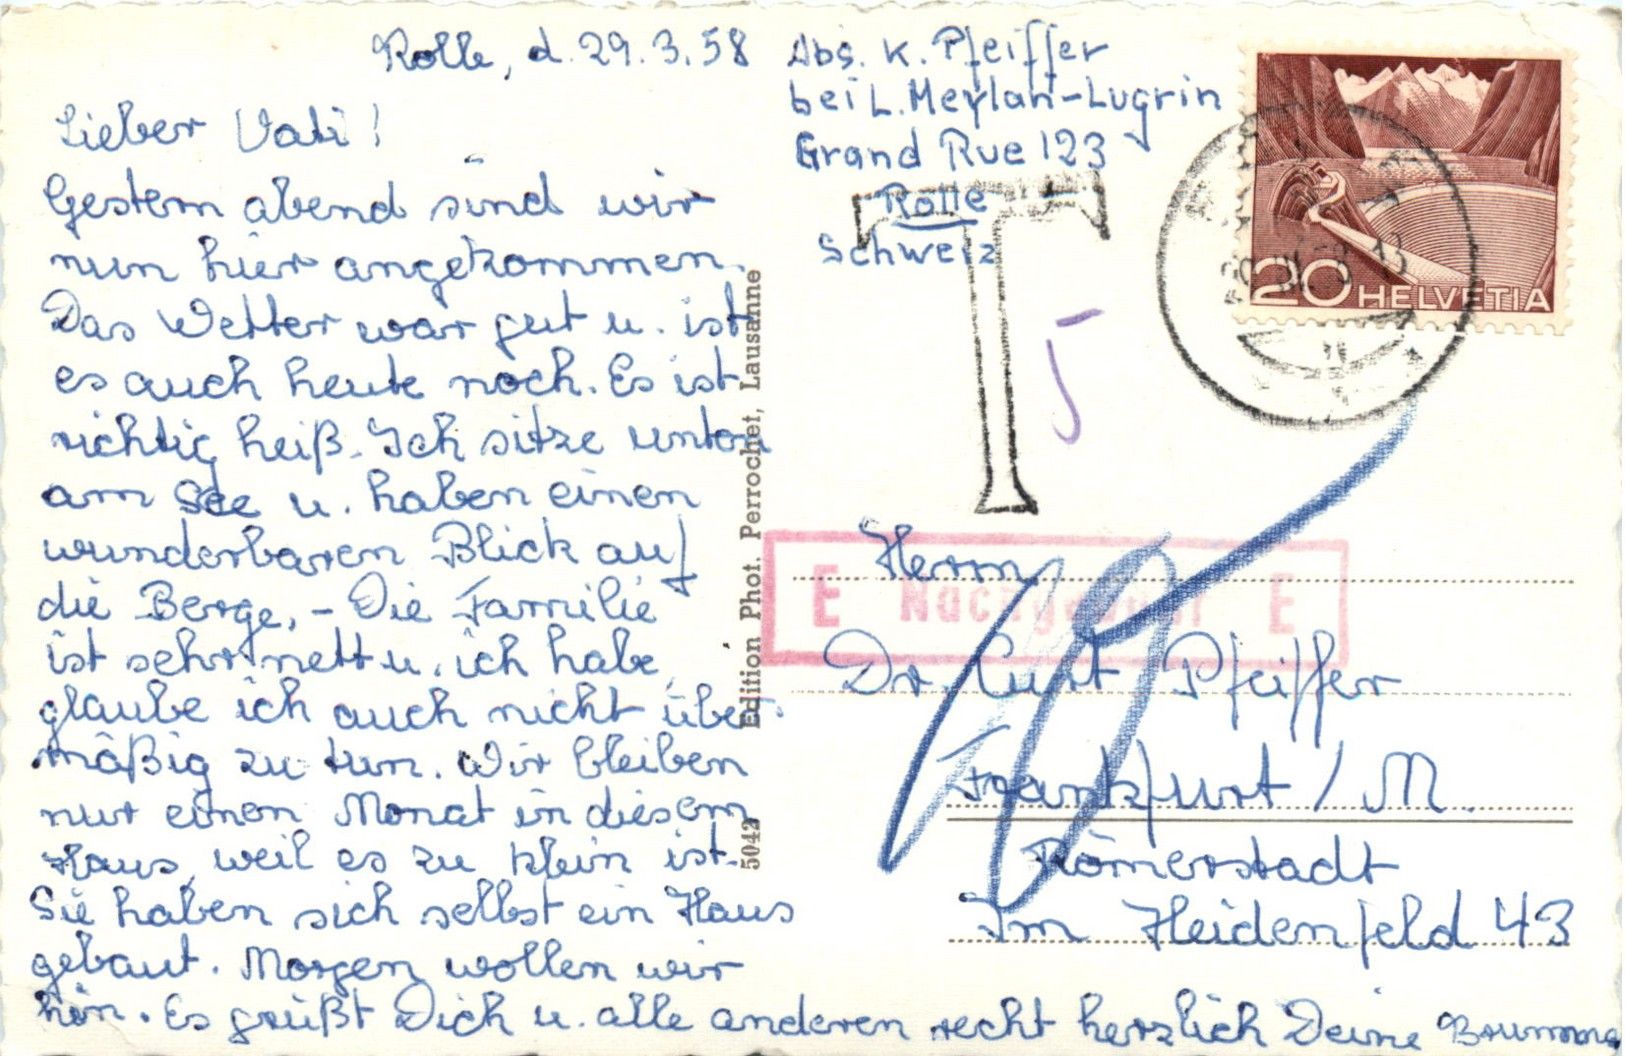 Rolle, d. 29.3.58
Lieber Vati!
Gestern abend sind wir
nun hier angekommen.
Das Wetter war gut u. ist
es auch heute noch. Es ist
richtig heiß. Ich sitze unten
am See u. haben einen
wunderbaren Blick auf
die Berge. – Die Familie
ist sehr nett u. ich habe,
glaube ich auch nicht über-
mäßig zu tun. Wir bleiben
nur einen Monat in diesem
Haus, weil es zu klein ist.
Sie haben sich selbst ein Haus
gebaut. Morgen wollen wir
hin. Es grüßt Dich u. alle anderen recht herzlich Deine
Edition Phot. Perrochet, Lausanne
5042
Abs. K. Pfeiffer
bei L. Meylan-Lugrin
Grand Rue 123
Rolle
Schweiz
20 HELVETIA
T
5
E Nachgebühr E
10
Herrn
Dr. Curt Pfeiffer
Frankfurt / M.
Römerstadt
Im Heidenfeld 43